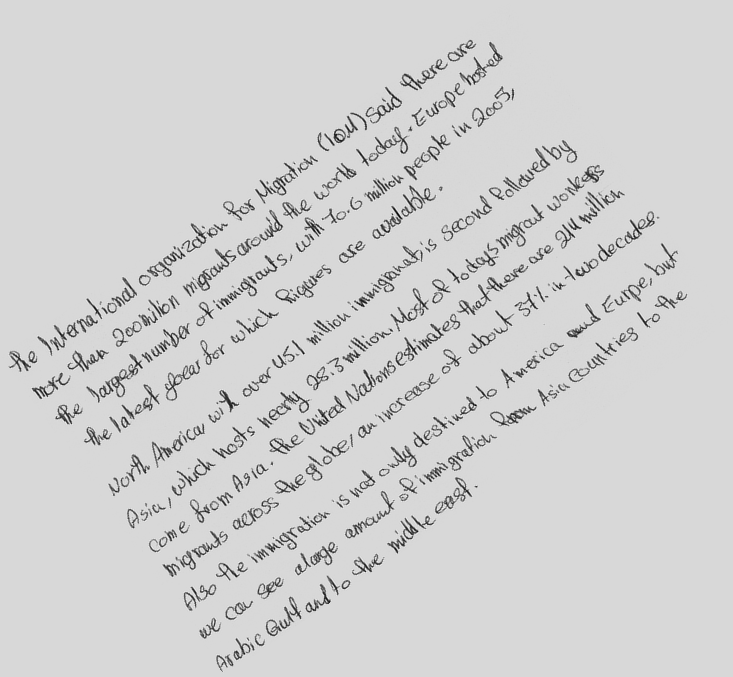 The International organization for Migration (IOM) said there are
more than 200 million migrants around the world today. Europe hosted
the largest number of immigrants, with 70.6 million people in 2005,
the latest year for which figures are available.
North America, with over 45.1 million immigrants, is second followed by
Asia, which hosts nearly 28.3 million. Most of todays migrant workers
come from Asia. the United Nations estimates that there are 214 million
migrants across the globe, an increase of about 37% in two decades.
Also the immigration is not only destined to America and Europe, but
we can see a large amount of immigration from Asia Countries to the
Arabic Gulf and to the middle east.